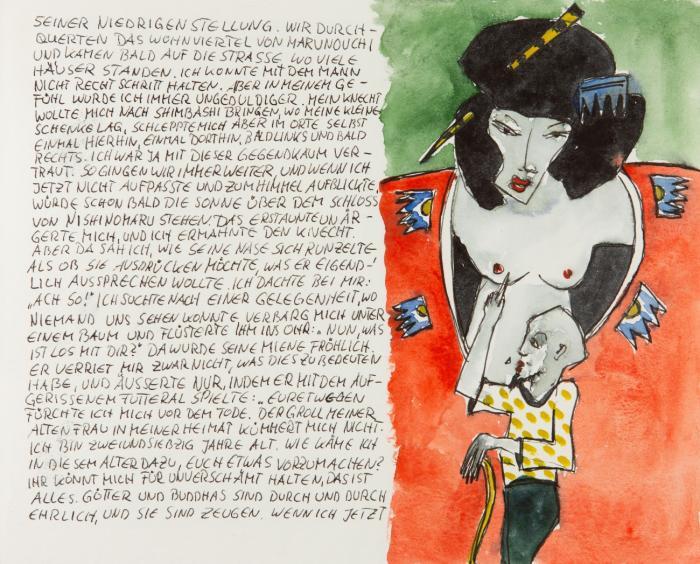 SEINER NIEDRIGEN STELLUNG. WIR DURCH-
QUERTEN DAS WOHNVIERTEL VON MARUNOUCHI
UND KAMEN BALD AUF DIE STRASSE, WO VIELE
HÄUSER STANDEN. ICH KONNTE MIT DEM MANN
NICHT RECHT SCHRITT HALTEN. ABER IN MEINEM GE-
FÜHL WURDE ICH IMMER UNGEDULDIGER. MEIN KNECHT
WOLLTE MICH NACH SHIMBASHI BRINGEN, WO MEINE KLEINE
SCHENKE LAG, SCHLEPPTE MICH ABER IM ORTE SELBST
EINMAL HIERHIN, EINMAL DORTHIN, BALD LINKS UND BALD
RECHTS. ICH WAR JA MIT DIESER GEGEND KAUM VER-
TRAUT. SO GINGEN WIR IMMER WEITER, UND WENN ICH
JETZT NICHT AUFPASSTE UND ZUM HIMMEL AUFBLICKTE,
WÜRDE SCHON BALD DIE SONNE ÜBER DEM SCHLOSS
VON NISHINOMARU STEHEN. DAS ERSTAUNTE UN ÄR-
GERTE MICH, UND ICH ERMAHNTE DEN KNECHT.
ABER DA SAH ICH, WIE SEINE NASE SICH RUNZELTE
ALS OB SIE AUSDRÜCKEN MÖCHTE, WAS ER EIGEND-
LICH AUSSPRECHEN WOLLTE. ICH DACHTE BEI MIR:
"ACH SO!" ICH SUCHTE NACH EINER GELEGENHEIT, WO
NIEMAND UNS SEHEN KONNTE, VERBARG MICH UNTER
EINEM BAUM UND FLÜSTERTE IHM INS OHR: "NUN, WAS
IST LOS MIT DIR?" DA WURDE SEINE MIENE FRÖHLICH.
ER VERRIET MIR ZWAR NICHT, WAS DIES ZU BEDEUTEN
HABE, UND ÄUSSERTE NUR, INDEM ER MIT DEM AUF-
GERISSENEM FUTTERAL SPIELTE: "EURETWEGEN
FÜRCHTE ICH MICH VOR DEM TODE. DER GROLL MEINER
ALTEN FRAU IN MEINER HEIMAT KÜMMERT MICH NICHT.
ICH BIN ZWEIUNDSIEBZIG JAHRE ALT. WIE KÄME ICH
IN DIESEM ALTER DAZU, EUCH ETWAS VORZUMACHEN?
IHR KÖNNT MICH FÜR UNVERSCHÄMT HALTEN, DAS IST
ALLES. GÖTTER UND BUDDHAS SIND DURCH UND DURCH
EHRLICH, UND SIE SIND ZEUGEN. WENN ICH JETZT